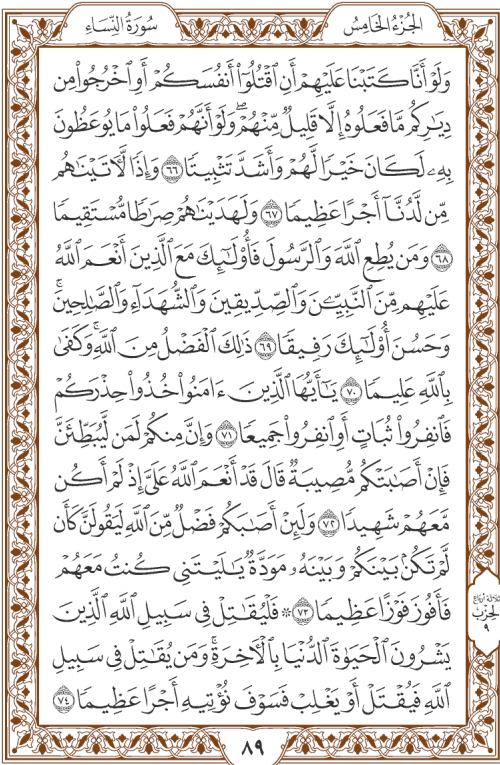 الجُزْءُ الخَامِسُ
سُورَةُ النِّسَاءِ
وَلَوْ أَنَّا كَتَبْنَا عَلَيْهِمْ أَنِ ٱقْتُلُوٓا۟ أَنفُسَكُمْ أَوِ ٱخْرُجُوا۟ مِن
دِيَـٰرِكُم مَّا فَعَلُوهُ إِلَّا قَلِيلٌ مِّنْهُمْ ۖ وَلَوْ أَنَّهُمْ فَعَلُوا۟ مَا يُوعَظُونَ
بِهِۦ لَكَانَ خَيْرًا لَّهُمْ وَأَشَدَّ تَثْبِيتًا ٦٦ وَإِذًا لَّـَٔاتَيْنَـٰهُم
مِّن لَّدُنَّآ أَجْرًا عَظِيمًا ٦٧ وَلَهَدَيْنَـٰهُمْ صِرَٰطًا مُّسْتَقِيمًا
٦٨ وَمَن يُطِعِ ٱللَّهَ وَٱلرَّسُولَ فَأُو۟لَـٰٓئِكَ مَعَ ٱلَّذِينَ أَنْعَمَ ٱللَّهُ
عَلَيْهِم مِّنَ ٱلنَّبِيِّـۧنَ وَٱلصِّدِّيقِينَ وَٱلشُّهَدَآءِ وَٱلصَّـٰلِحِينَ ۚ
وَحَسُنَ أُو۟لَـٰٓئِكَ رَفِيقًا ٦٩ ذَٰلِكَ ٱلْفَضْلُ مِنَ ٱللَّهِ ۚ وَكَفَىٰ
بِٱللَّهِ عَلِيمًا ٧٠ يَـٰٓأَيُّهَا ٱلَّذِينَ ءَامَنُوا۟ خُذُوا۟ حِذْرَكُمْ
فَٱنفِرُوا۟ ثُبَاتٍ أَوِ ٱنفِرُوا۟ جَمِيعًا ٧١ وَإِنَّ مِنكُمْ لَمَن لَّيُبَطِّئَنَّ
فَإِنْ أَصَـٰبَتْكُم مُّصِيبَةٌ قَالَ قَدْ أَنْعَمَ ٱللَّهُ عَلَىَّ إِذْ لَمْ أَكُن
مَّعَهُمْ شَهِيدًا ٧٢ وَلَئِنْ أَصَـٰبَكُمْ فَضْلٌ مِّنَ ٱللَّهِ لَيَقُولَنَّ كَأَن
لَّمْ تَكُنۢ بَيْنَكُمْ وَبَيْنَهُۥ مَوَدَّةٌ يَـٰلَيْتَنِى كُنتُ مَعَهُمْ
فَأَفُوزَ فَوْزًا عَظِيمًا ٧٣ ۞ فَلْيُقَـٰتِلْ فِى سَبِيلِ ٱللَّهِ ٱلَّذِينَ
يَشْرُونَ ٱلْحَيَوٰةَ ٱلدُّنْيَا بِٱلْـَٔاخِرَةِ ۚ وَمَن يُقَـٰتِلْ فِى سَبِيلِ
ٱللَّهِ فَيُقْتَلْ أَوْ يَغْلِبْ فَسَوْفَ نُؤْتِيهِ أَجْرًا عَظِيمًا ٧٤
ثلاثة أرباع
الحزب
٩
٨٩